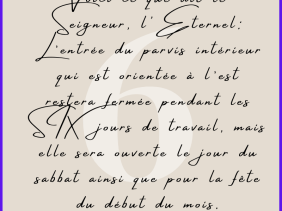 Voici ce que dit le
Seigneur, l'Eternel:
L'entrée du parvis intérieur
qui est orientée à l'est
restera fermée pendant les
SIX jours de travail, mais
elle sera ouverte le jour du
sabbat ainsi que pour la fête
du début du mois.
6